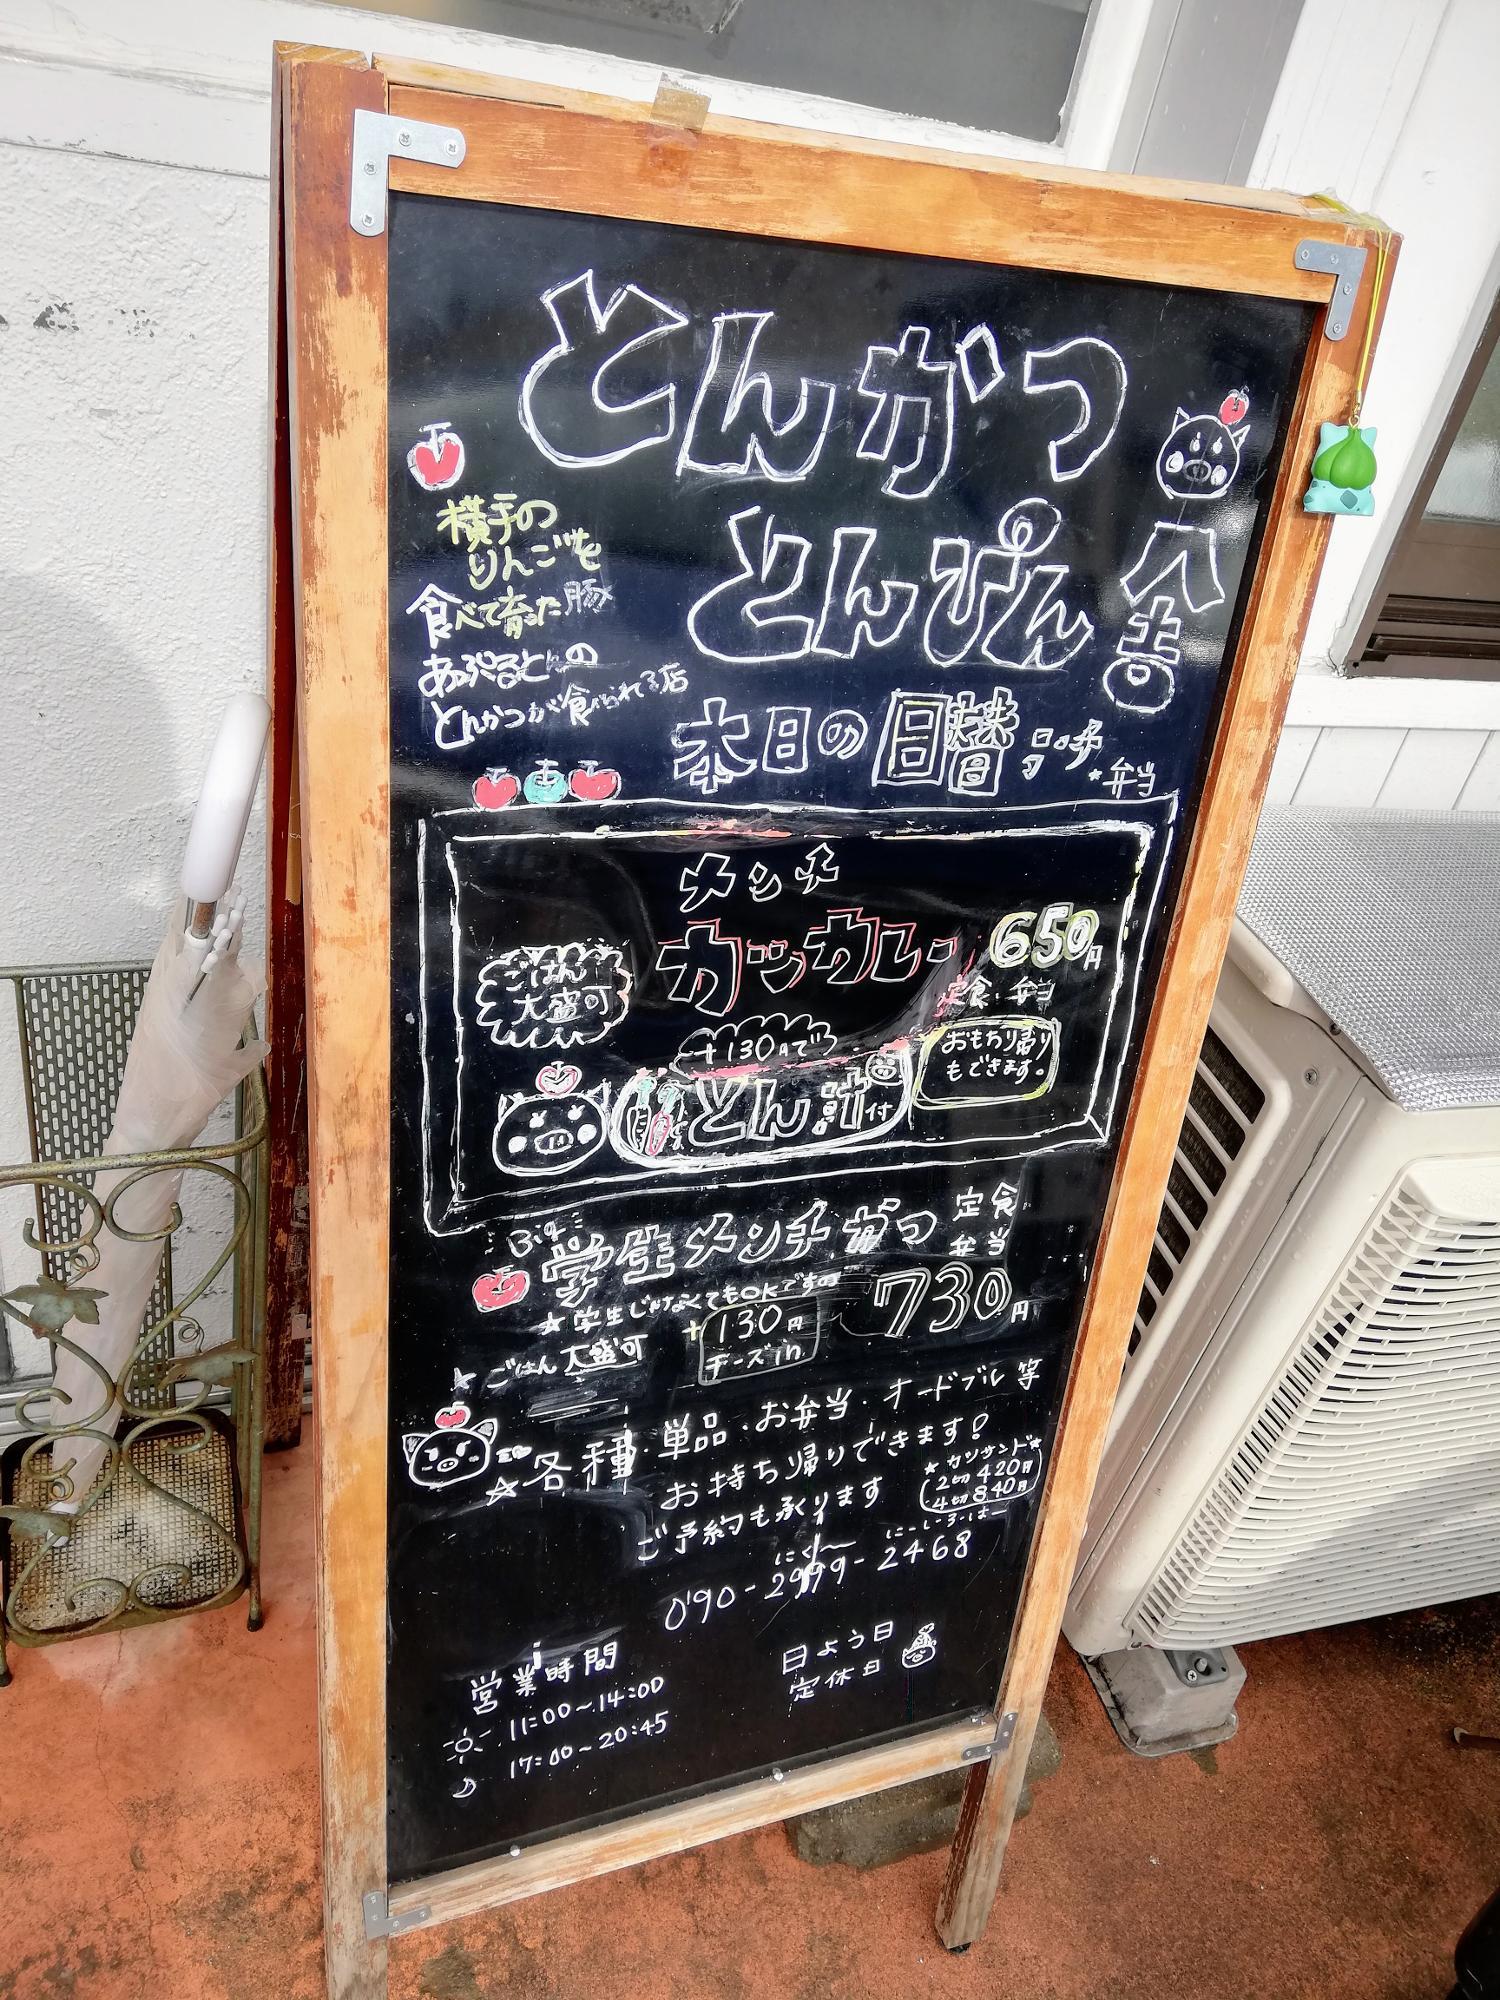 とんかつ
とんぴん
八吉
横手の
りんごを
食べて育った豚
あっぷるとんの
とんかつが食べられる店
本日の日替ランチ
・弁当
メンチ
カツカレー
650円
定食・弁当
ごはん
大盛可
おもち帰り
もできます。
+130円で
とん汁付
Big
学生メンチかつ
定食
弁当
730円
☆学生じゃなくてもOKですの
+130円
チーズin
☆ごはん大盛可
☆各種・単品・お弁当・オードブル等
お持ち帰りできます!
ご予約も承ります
★カツサンド★
2切420円
4切840円
にくー
にーしーろーはー
090-2999-2468
営業時間
11:00~14:00
17:00~20:45
日よう日
定休日